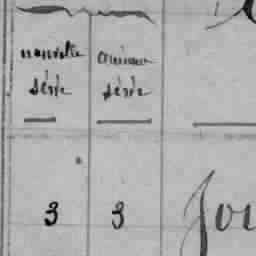 nouvelle ancienne
série série
3 3 Jou